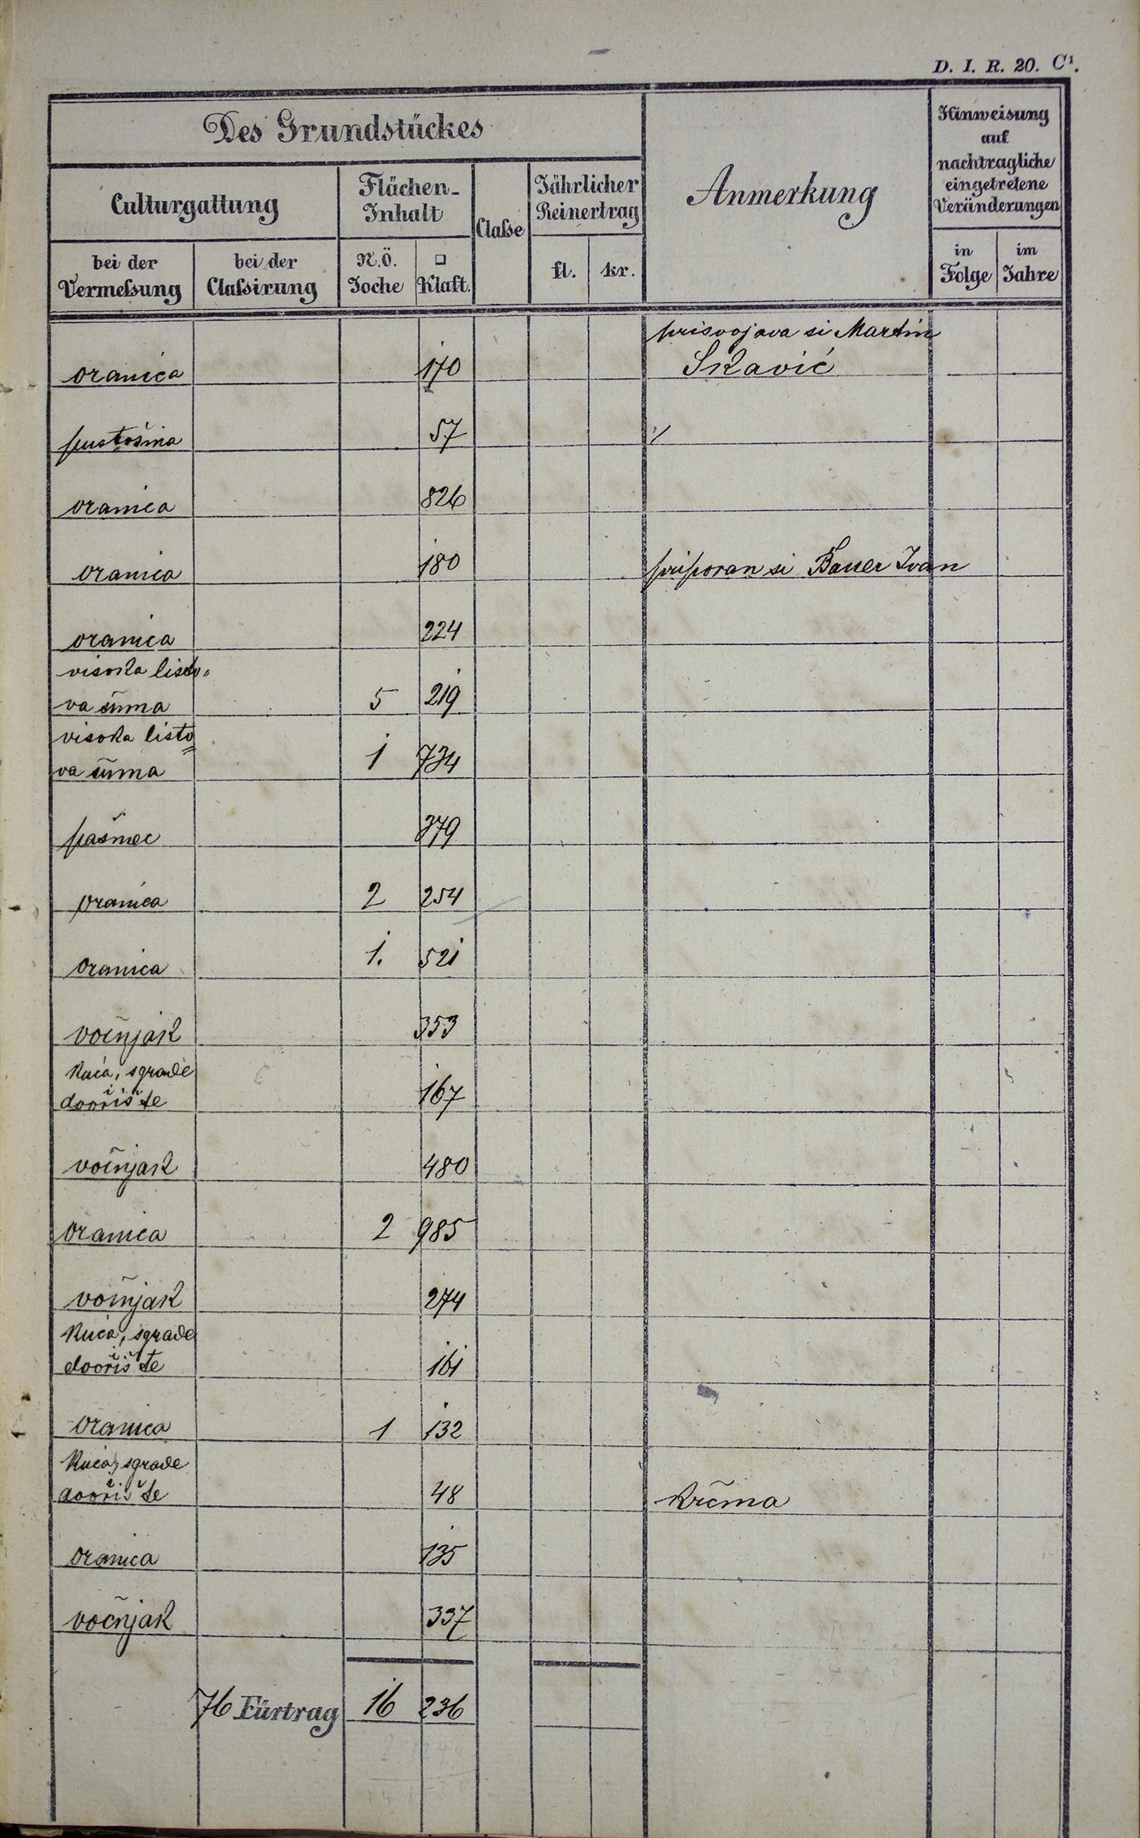 D. I. R. 20. C¹.
Des Grundstückes
Anmerkung
Hinweisung
auf
nachtragliche
eingetretene
Veränderungen
Culturgattung
Flächen-
Inhalt
Classe
Jährlicher
Reinertrag
bei der
Vermessung
bei der
Classirung
N.Ö.
Joche
□
Klaft.
fl.
kr.
in
Folge
im
Jahre
prisvojava si Martin
oranica 170 Skavić
pustošina 57 〃
oranica 826
oranica 180 priporan si Bauer Ivan
oranica 224
visoka listo„
va šuma 5 219
visoka listo
va šuma 1 734
pašnec 379
oranica 2 254
oranica 1. 521
voćnjak 353
Kuća, sgrade
i dvorište 167
voćnjak 480
oranica 2 985
voćnjak 274
Kuća, sgrade
i dvorište 161
oranica 1 132
Kuća, sgrade
i dvorište 48 Krčma
oranica 135
voćnjak 337
76 Fürtrag 16 236